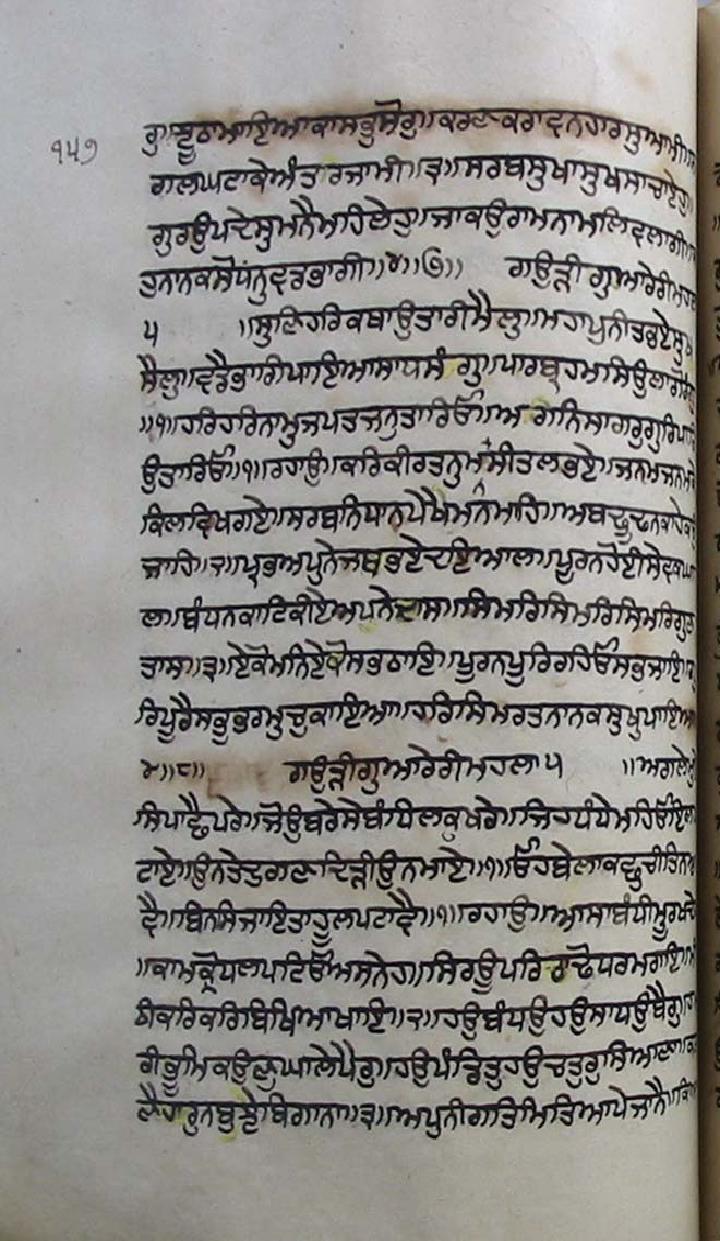 ੧੫੭
ਗੁ॥ਤੂਠਾਪਾਇਆਕਾਸਭੁਸੰਗੁ॥ਕਰਣਕਰਾਵਨਹਾਰਸੁਆਮੀ॥
ਗਲਘਟਾਕੇਅੰਤਰਜਾਮੀ॥੩॥ਸਰਬਸੁਖਾਸੁਖਸਾਚਾਏਹੁ॥
ਗੁਰਉਪਦੇਸੁਮਨੈਮਹਿਲੇਹੁ॥ਜਾਕਉਰਾਮਨਾਮਲਿਵਲਾਗੀ॥
ਤੁਨਾਨਕਸੋਧੰਨੁਵਡਭਾਗੀ॥੪॥੭॥ ਗਉੜੀ ਗੁਆਰੇਰੀਮਹਲਾ
੫ ॥ਸੁਣਿਹਰਿਕਥਾਉਤਾਰੀਮੈਲੁ॥ਮਹਾਪੁਨੀਤਭਏਸੁਖ
ਸੈਲੁ॥ਵਡੈਭਾਗਿਪਾਇਆਸਾਧਸੰਗੁ॥ਪਾਰਬ੍ਰਹਮਸਿਉਲਾਗੋਰੰਗੁ
॥੧॥ਹਰਿਹਰਿਨਾਮੁਜਪਤਜਨੁਤਾਰਿਓ॥ਅਗਨਿਸਾਗਰੁਗੁਰਿਪਾਰਿ
ਉਤਾਰਿਓ॥੧॥ਰਹਾਉ॥ਕਰਿਕੀਰਤਨੁਮਨਸੀਤਲਭਏ॥ਜਨਮਜਨਮਕੇ
ਕਿਲਵਿਖਗਏ॥ਸਰਬਨਿਧਾਨਪੇਖੇਮਨਮਾਹਿ॥ਅਬਢੂਢਨਕਾਹੇਕਉ
ਜਾਹਿ॥੨॥ਪ੍ਰਭਅਪੁਨੇਜਬਭਏਦਇਆਲ॥ਪੂਰਨਹੋਈਸੇਵਕਘਾ
ਲ॥ਬੰਧਨਕਾਟਿਕੀਏਅਪਨੇਦਾਸ॥ਸਿਮਰਿਸਿਮਰਿਸਿਮਰਿਗੁਣ
ਤਾਸ॥੩॥ਏਕੋਮਨਿਏਕੋਸਭਠਾਇ॥ਪੂਰਨਪੂਰਿਰਹਿਓਸਭਜਾਇ॥ਗੁ
ਰਿਪੂਰੈਸਭੁਭਰਮੁਚੁਕਾਇਆ॥ਹਰਿਸਿਮਰਤਨਾਨਕਸੁਖੁਪਾਇਆ
੪॥੮॥ ਗਉੜੀਗੁਆਰੇਰੀਮਹਲਾ੫ ॥ਅਗਲੇਮੁਏ
ਸਿਪਾਛੈਪਰੇ॥ਜੋਉਬਰੇਸੇਬੰਧਿਲਕੁਖਰੇ॥ਜਿਹਧੰਧੇਮਹਿਓਇਲਪ
ਟਾਏ॥ਉਨਤੇਦੁਗਣਦਿੜੀਉਨਮਾਏ॥੧॥ਓਹਬੇਲਾਕਛੁਚੀਤਿਨਆ
ਵੈ॥ਬਿਨਸਿਜਾਇਤਾਹੂਲਪਟਾਵੈ॥੧॥ਰਹਾਉ॥ਆਸਾਬੰਧੀਮੂਰਖਦੇਹ
॥ਕਾਮਕ੍ਰੋਧਲਪਟਿਓਅਸਨੇਹ॥ਸਿਰਊਪਰਿਠਾਢੋਧਰਮਰਾਇ॥ਮੀ
ਠੀਕਰਿਕਰਿਬਿਖਿਆਖਾਇ॥੨॥ਹਉਬੰਧਉਹਉਸਾਧਉਬੈਰੁ॥ਹਮ
ਰੀਭੂਮਿਕਉਣੁਘਾਲੈਪੈਰੁ॥ਹਉਪੰਡਿਤੁਹਉਚਤੁਰੁਸਿਆਣਾ॥ਕਰਣੈ
ਹਾਰੁਨਬੁਝੈਬਿਗਾਨਾ॥੩॥ਅਪੁਨੀਗਤਿਮਿਤਿਆਪੇਜਾਨੈ॥ਕਿਆ